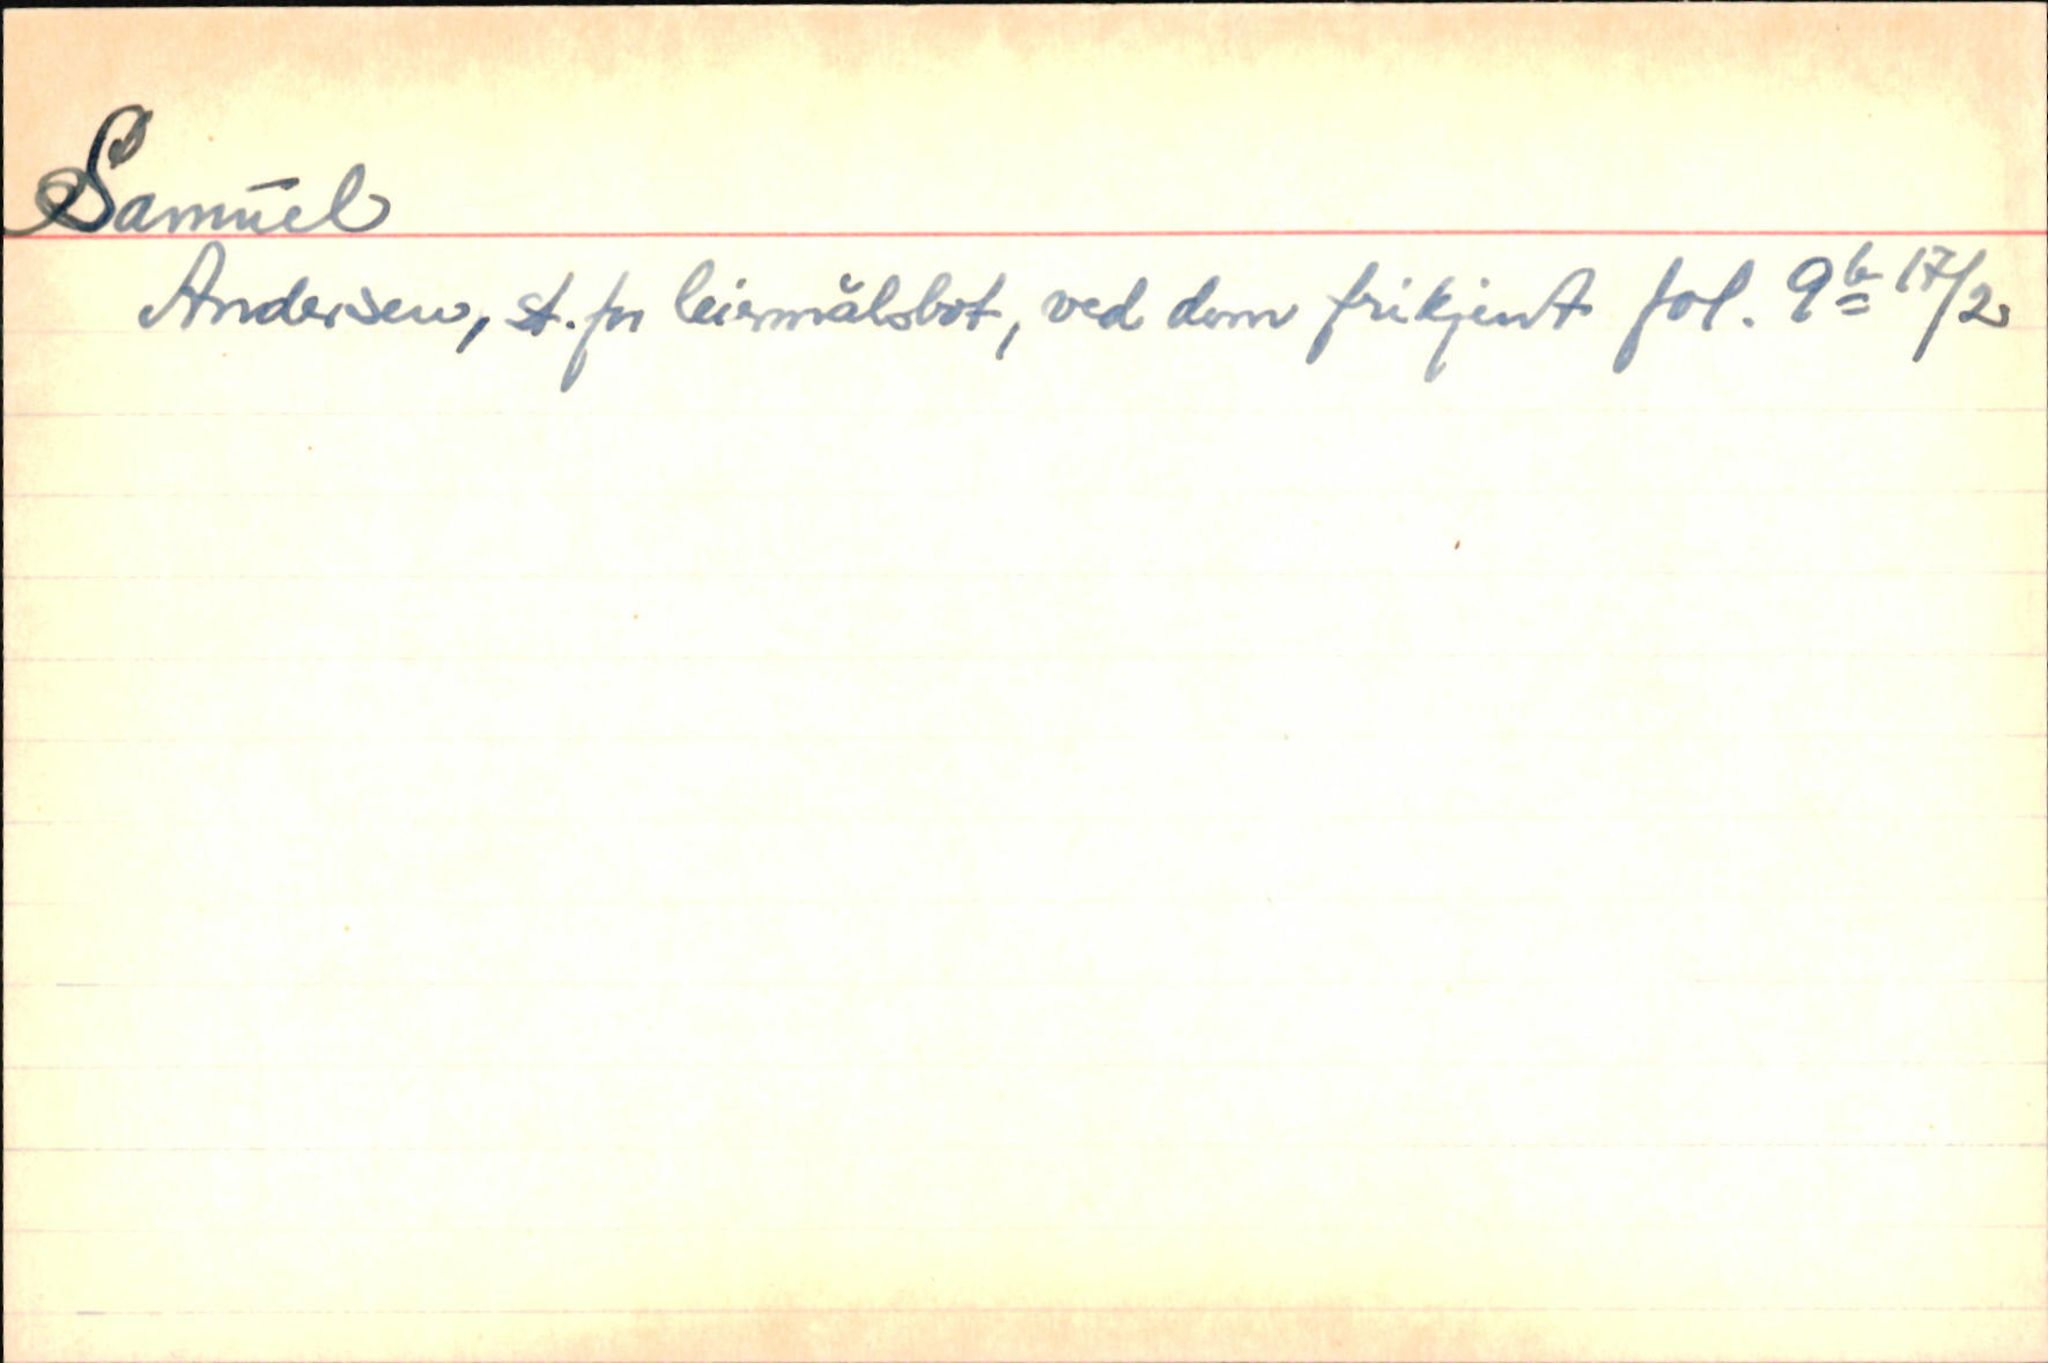 Samuel
Andersen, st. for leiermålsbot, ved dom frikjent fol. 9b 17/2